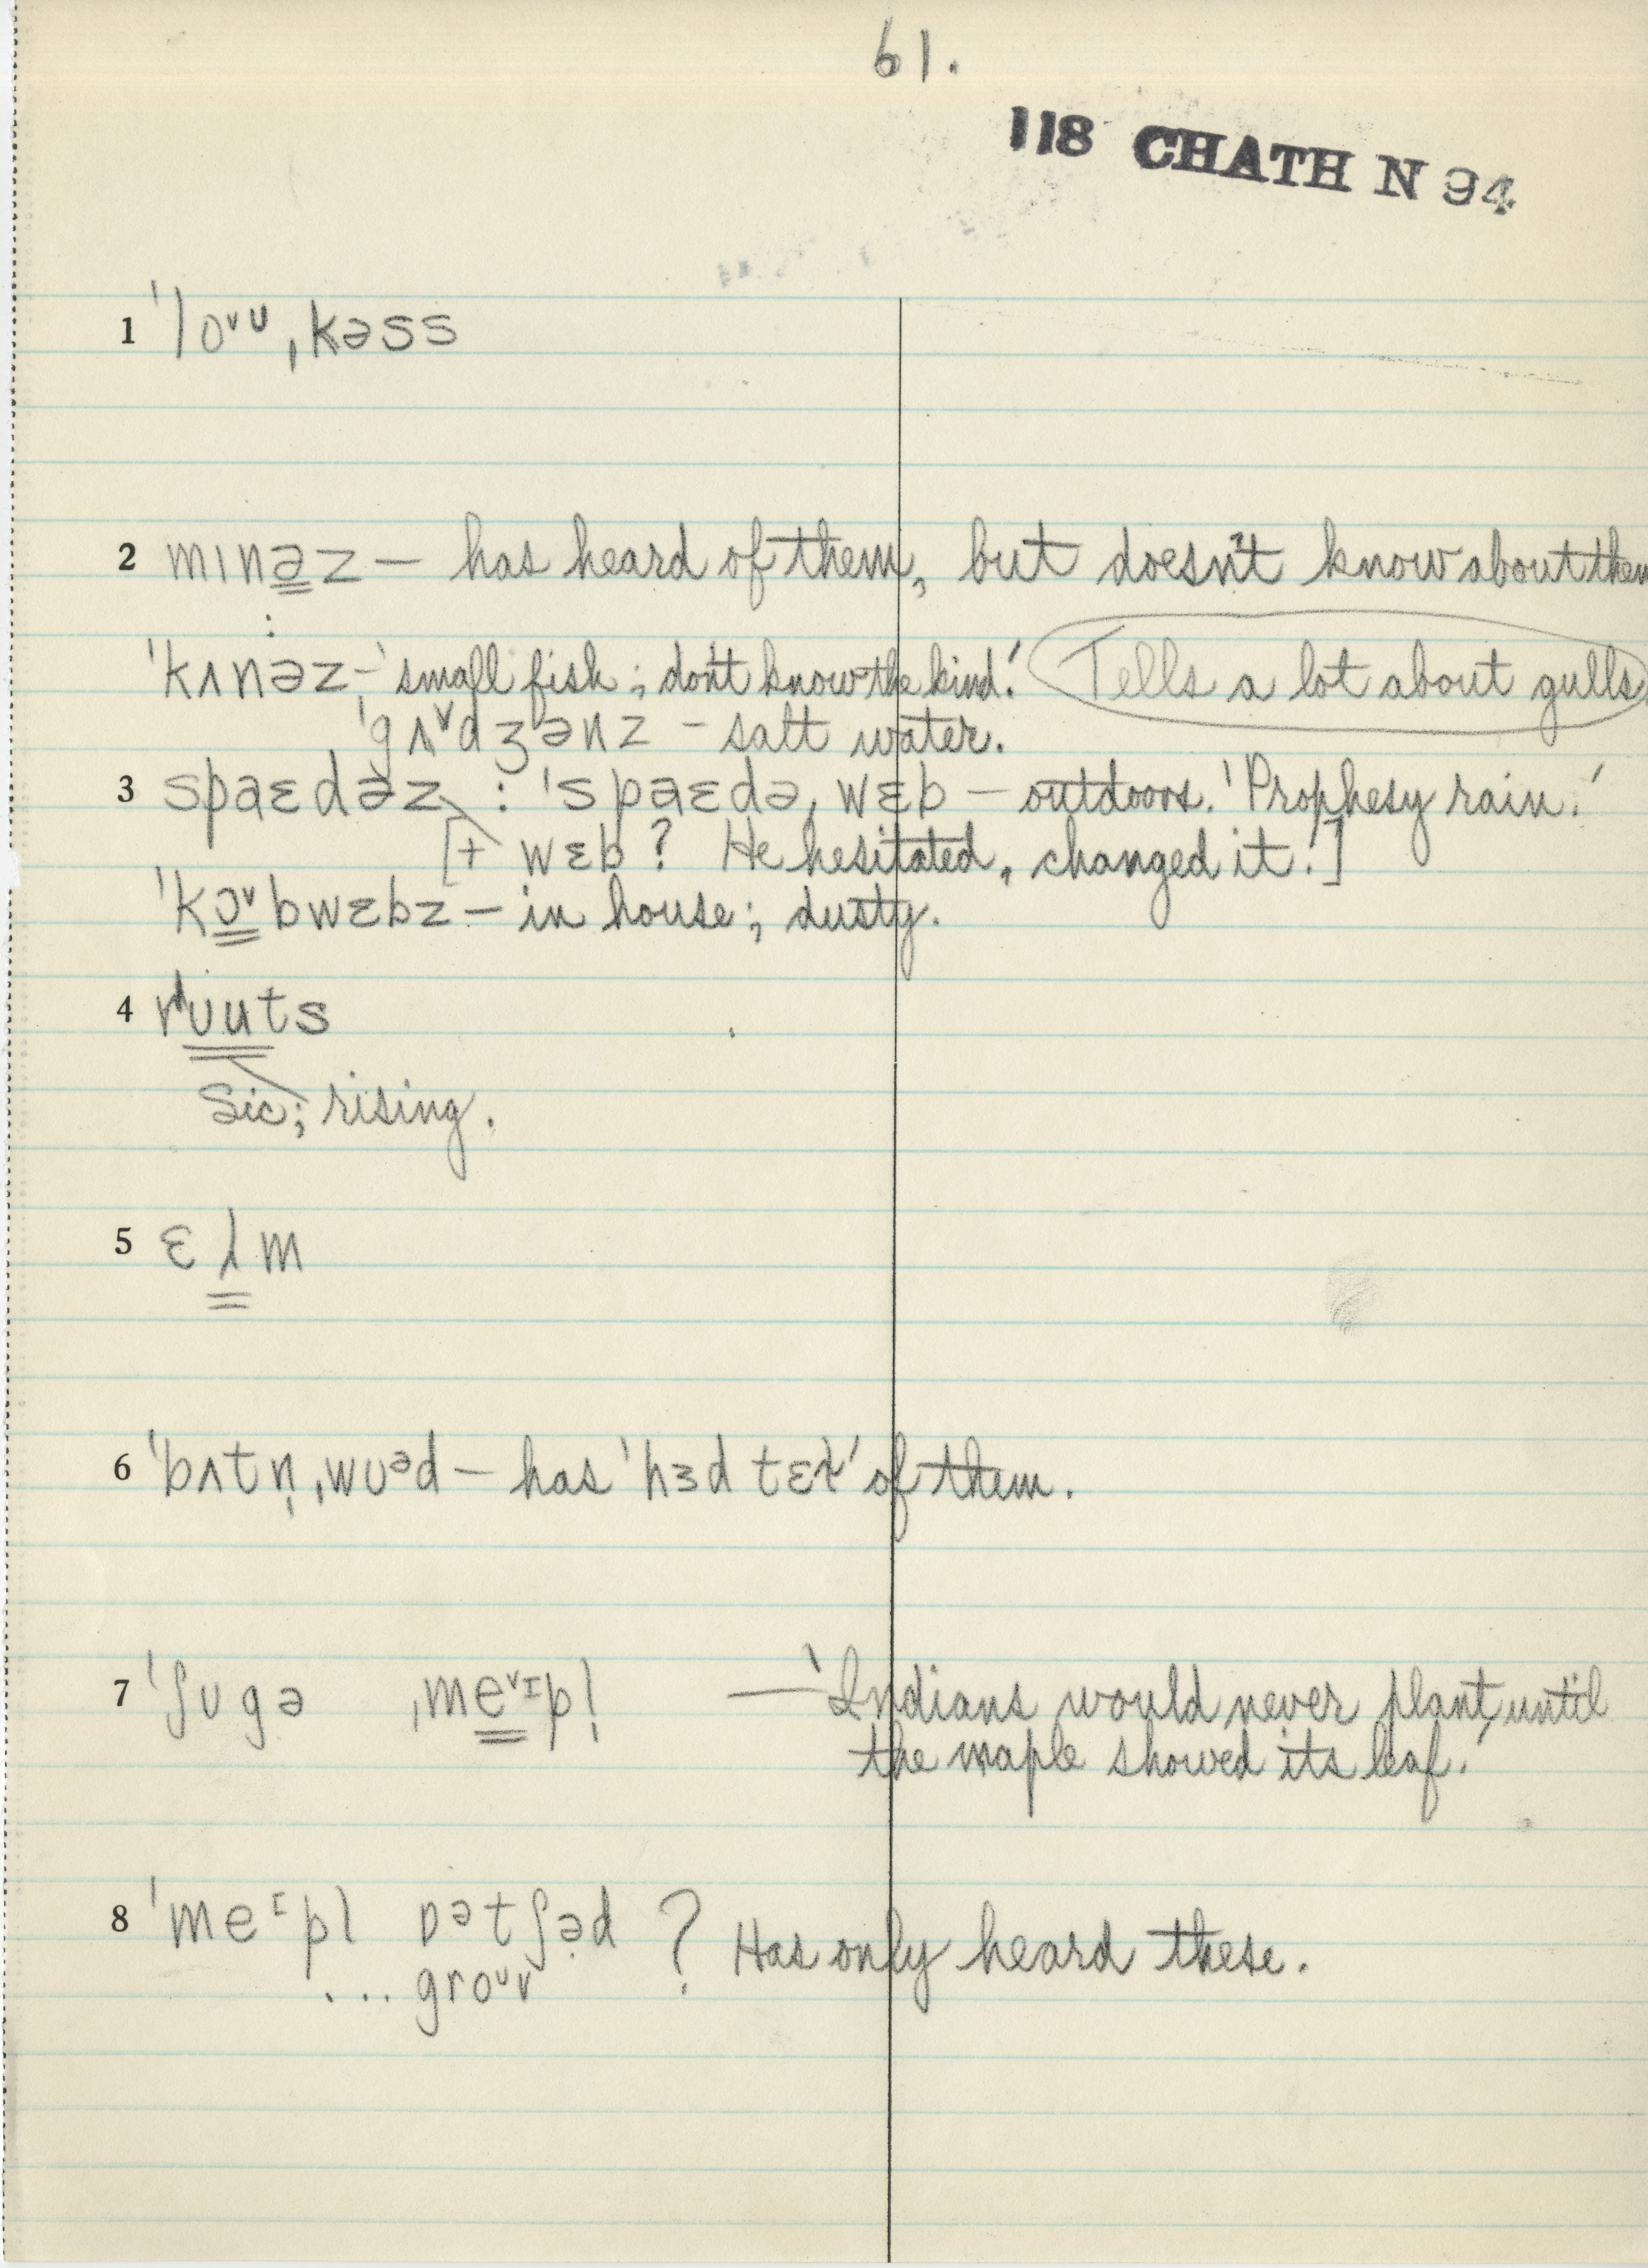 61.
118 CHATH N 94
1 ˈloᵛᶸ ˌkəss
2 mınəz — has heard of them, but doesn't know about them
:
ˈkʌnəz - 'small fish; don't know the kind.' Tells a lot about gulls.
ˈgʌᵛdʒənz - salt water.
3 spaɛdəz : ˈspaɛdəˌwɛb — outdoors. 'Prophesy rain.'
[+ wɛb? He hesitated, changed it.]
ˈkɔᵛbwɛbz — in house; dusty.
4 rᴜuts
Sic; rising.
5 ɛłm
6 ˈbʌtn̩ˌwᴜᵊd — has 'hɜd tɛł' of them.
7 ˈʃᴜgə ˌmeᵛᶦpl̩ — 'Indians would never plant, until
the maple showed its leaf.'
8 ˈmeᶦpl ɒətʃəd ? Has only heard these.
... groᶸv